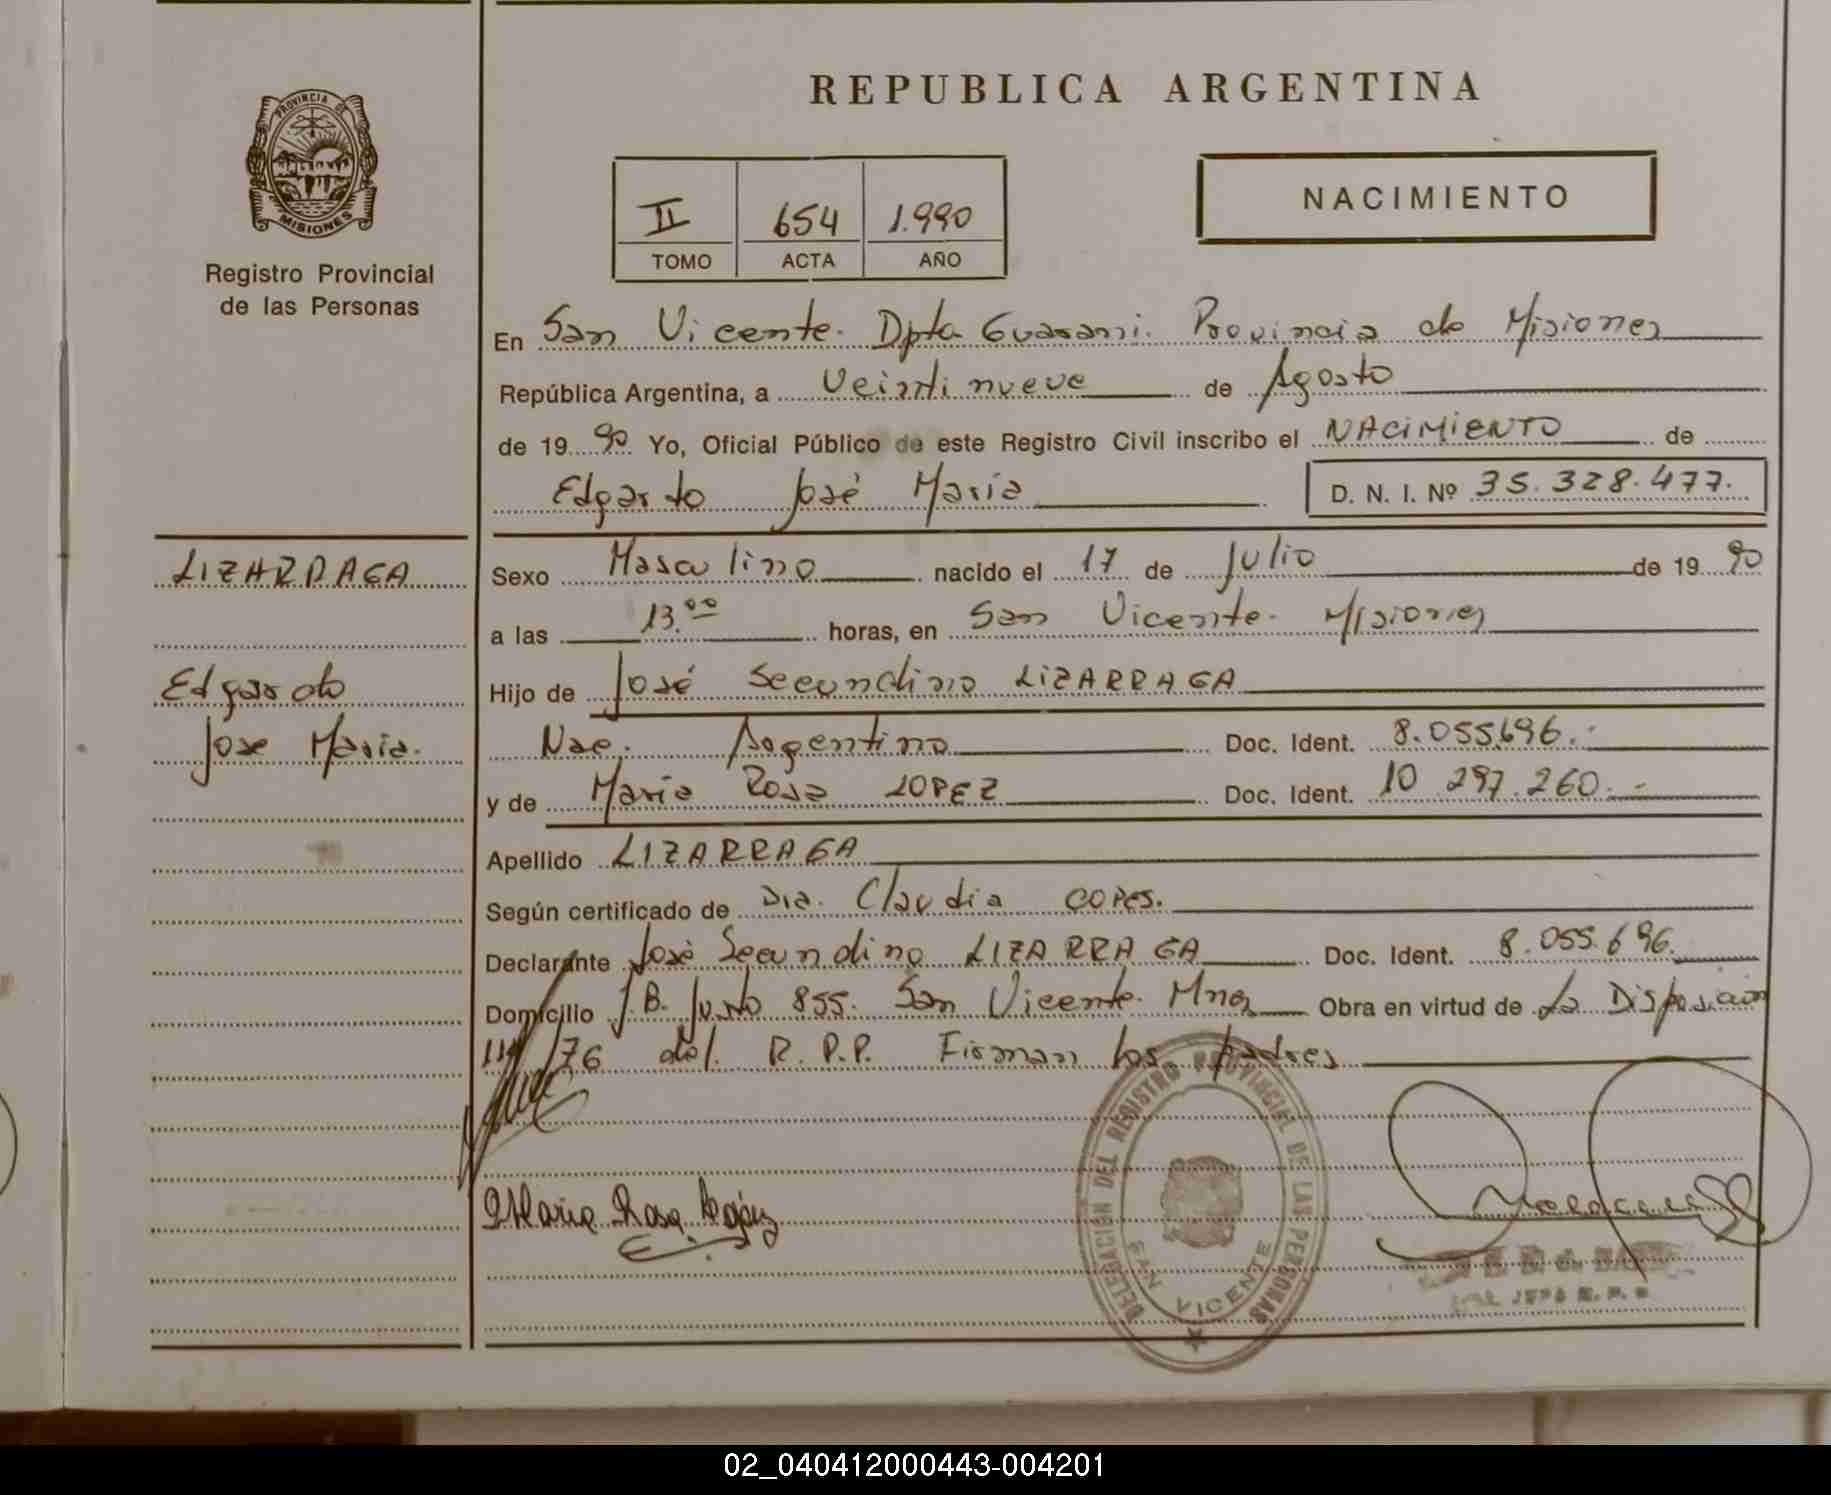 REPUBLICA ARGENTINA
PROVINCIA DE MISIONES
Registro Provincial
de las Personas
II 654 1.990
TOMO ACTA AÑO
NACIMIENTO
En San Vicente. Dpto Guarani. Provincia de Misiones
República Argentina, a Veintinueve de Agosto
de 1990 Yo, Oficial Público de este Registro Civil inscribo el NACIMIENTO de
Edgardo José Maria D. N. I. Nº 35.328.477.
LIZARRAGA
Edgardo
Jose Maria.
Sexo Masculino nacido el 17 de Julio de 1990
a las 13.00 horas, en San Vicente. Misiones
Hijo de José Secundino LIZARRAGA
Nac. Argentino Doc. Ident. 8.055.696.-
y de Maria Rosa LOPEZ Doc. Ident. 10 297.260.-
Apellido LIZARRAGA
Según certificado de Dra. Claudia COPES.
Declarante José Secundino LIZARRAGA Doc. Ident. 8.055.696.
Domicilio J.B. Justo 855. San Vicente. Mnes Obra en virtud de La Disposición
/76 del R.P.P. Firman los padres
Maria Rosa López
DELEGACION DEL REGISTRO PROVINCIAL DE LAS PERSONAS
SAN VICENTE
JEFA R.P.P.
02_040412000443-004201